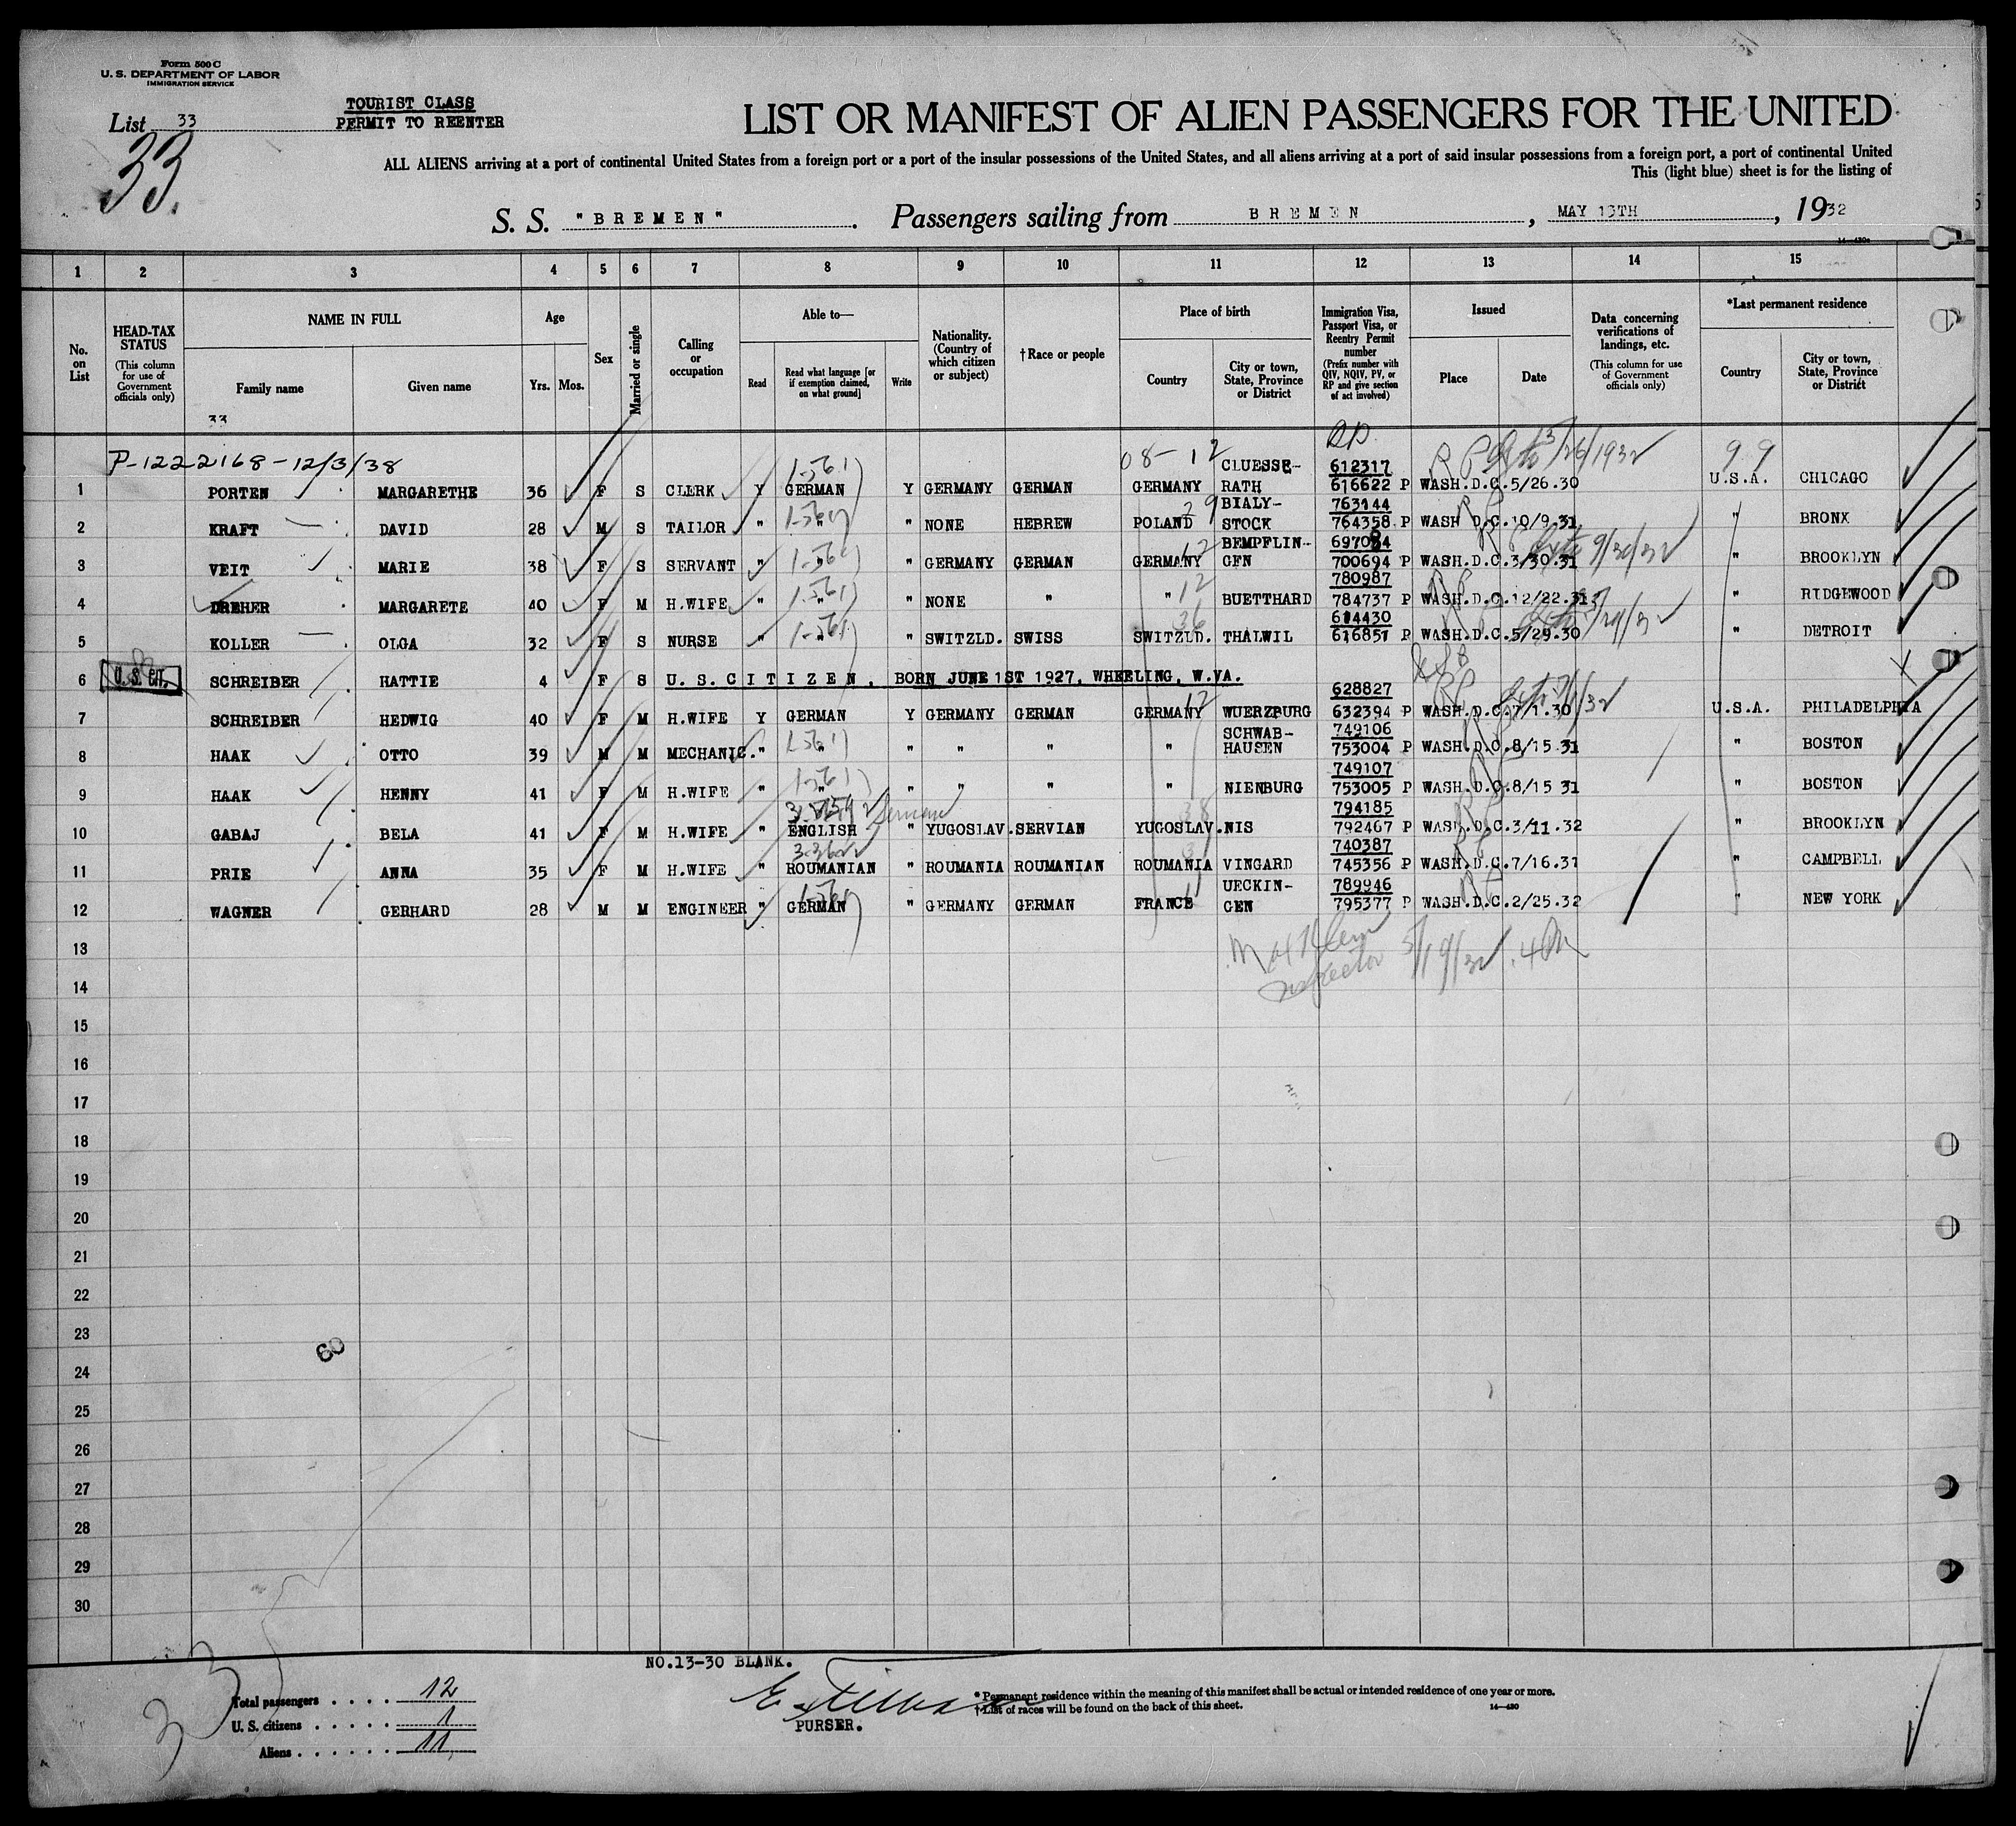 Form 500 C
U. S. DEPARTMENT OF LABOR
IMMIGRATION SERVICE
TOURIST CLASS
PERMIT TO REENTER
List 33
33.
LIST OR MANIFEST OF ALIEN PASSENGERS FOR THE UNITED
ALL ALIENS arriving at a port of continental United States from a foreign port or a port of the insular possessions of the United States, and all aliens arriving at a port of said insular possessions from a foreign port, a port of continental United
This (light blue) sheet is for the listing of
S. S. "BREMEN". Passengers sailing from BREMEN, MAY 13TH, 1932
1 2 3 4 5 6 7 8 9 10 11 12 13 14 15
No. on List
HEAD-TAX STATUS (This column for use of Government officials only)
NAME IN FULL
Family name
Given name
Age
Yrs. Mos.
Sex
Married or single
Calling or occupation
Able to—
Read
Read what language [or if exemption claimed, on what ground]
Write
Nationality. (Country of which citizen or subject)
†Race or people
Place of birth
Country
City or town, State, Province or District
Immigration Visa, Passport Visa, or Reentry Permit number (Prefix number with QIV, NQIV, PV, or RP and give section of act involved)
Issued
Place
Date
Data concerning verifications of landings, etc. (This column for use of Government officials only)
*Last permanent residence
Country
City or town, State, Province or District
33
RP
P-1222168-12/3/38
08-12 99
1 PORTEN MARGARETHE 36 F S CLERK Y GERMAN Y GERMANY GERMAN GERMANY CLUESSE-RATH 612317 616622 P WASH.D.C. 5/26.30 U.S.A. CHICAGO
2 KRAFT DAVID 28 M S TAILOR " " " NONE HEBREW POLAND BIALY-STOCK 763144 764358 P WASH D.C. 10/9.31 " BRONX
3 VEIT MARIE 38 F S SERVANT " " " GERMANY GERMAN GERMANY BEMPFLIN-GEN 700694 P WASH.D.C. 3/30.31 " BROOKLYN
4 DREHER MARGARETE 40 F M H.WIFE " " " NONE " " BUETTHARD 780987 784737 P WASH.D.C. 12/22.31 " RIDGEWOOD
5 KOLLER OLGA 32 F S NURSE " " " SWITZLD. SWISS SWITZLD. THALWIL 614430 616851 P WASH.D.C. 5/29.30 " DETROIT
U.S. CIT.
6 SCHREIBER HATTIE 4 F S U.S. CITIZEN, BORN JUNE 1ST 1927, WHEELING, W.VA.
7 SCHREIBER HEDWIG 40 F M H.WIFE Y GERMAN Y GERMANY GERMAN GERMANY WUERZBURG 628827 632394 P WASH.D.C. 7/1.30 U.S.A. PHILADELPHIA
8 HAAK OTTO 39 M M MECHANIC. " " " " " " SCHWAB-HAUSEN 749106 753004 P WASH.D.C. 8/15 31 " BOSTON
9 HAAK HENNY 41 F M H.WIFE " " " " " " NIENBURG 749107 753005 P WASH.D.C. 8/15 31 " BOSTON
10 GABAJ BELA 41 F M H.WIFE " ENGLISH " YUGOSLAV. SERVIAN YUGOSLAV. NIS 794185 792467 P WASH.D.C. 3/11.32 " BROOKLYN
11 PRIE ANNA 35 F M H.WIFE " ROUMANIAN " ROUMANIA ROUMANIAN ROUMANIA VINGARD 740387 745356 P WASH.D.C. 7/16.31 " CAMPBELL
12 WAGNER GERHARD 28 M M ENGINEER " GERMAN " GERMANY GERMAN FRANCE UECKIN-GEN 789946 795377 P WASH.D.C. 2/25.32 " NEW YORK
13
Inspector 5/19/32
14
15
16
17
18
19
20
21
22
23
60
24
25
26
27
28
29
30
NO.13-30 BLANK.
Total passengers . . . . 12
U. S. citizens . . . . . 1
Aliens . . . . . . 11
PURSER.
* Permanent residence within the meaning of this manifest shall be actual or intended residence of one year or more.
† List of races will be found on the back of this sheet.
14—430